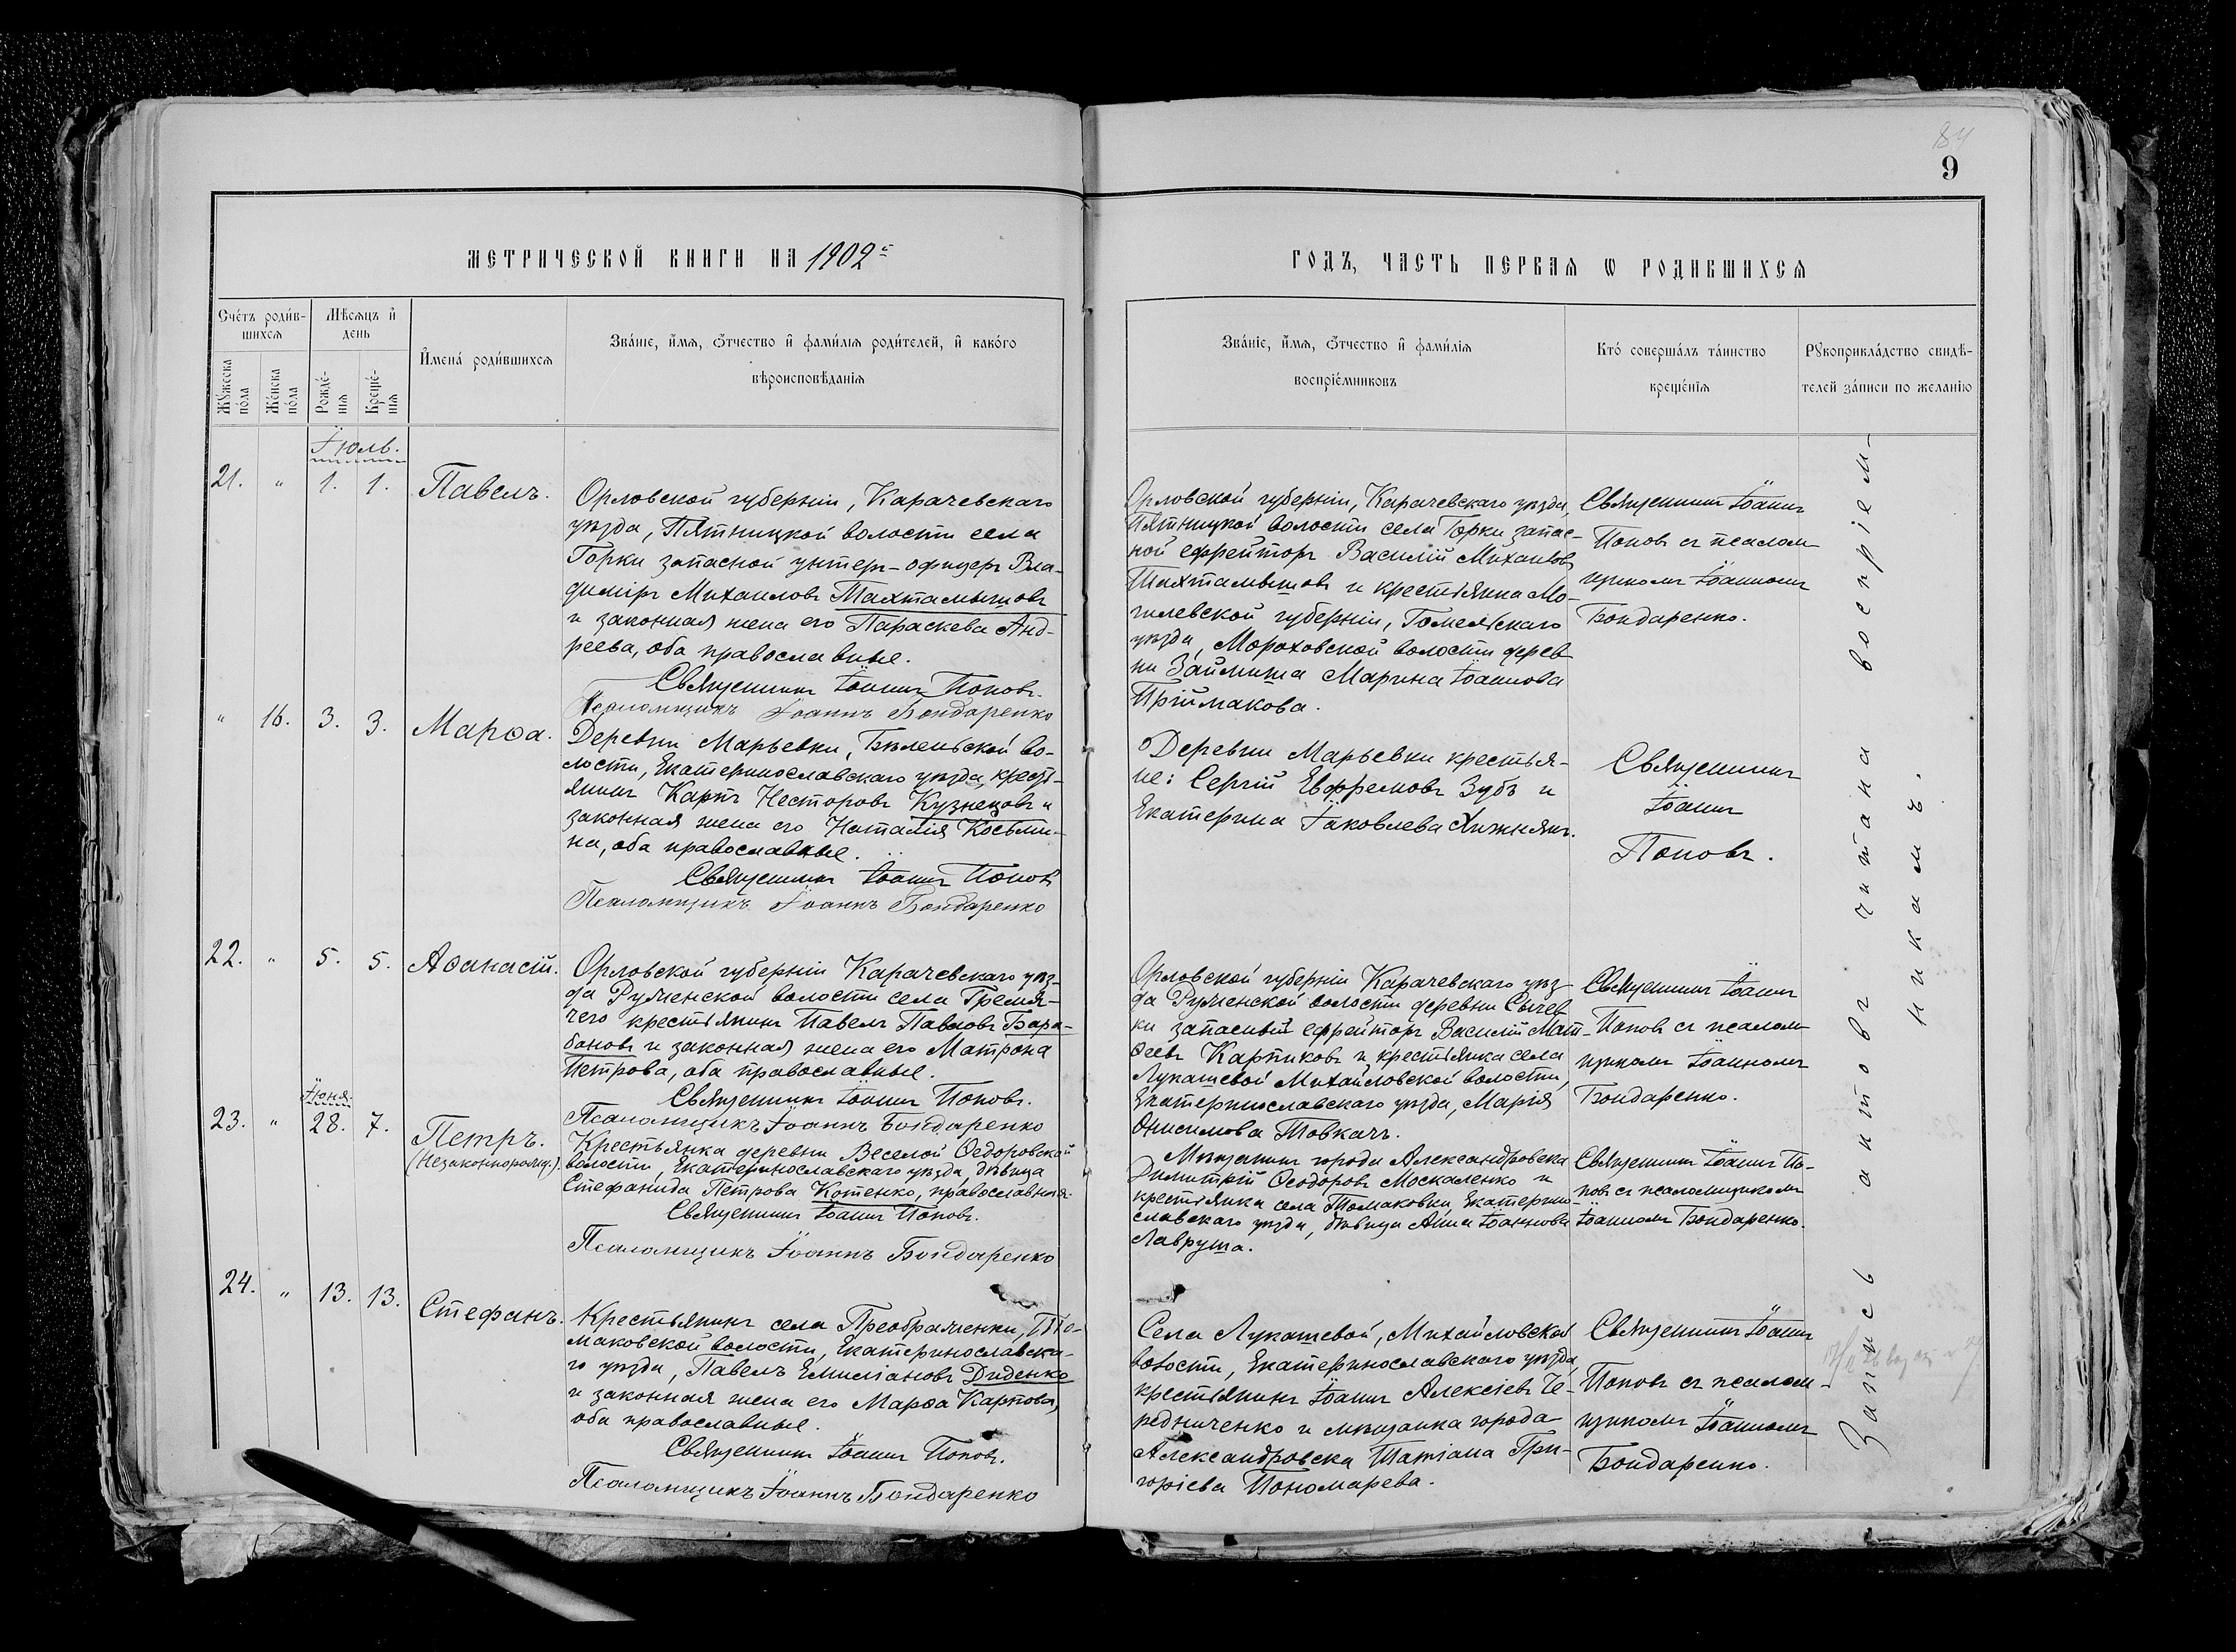 84
9
МЕТРИЧЕСКОЙ КНИГИ НА 1902й
ГОДЪ, ЧАСТЬ ПЕРВАЯ Ѡ РОДИВШИХСЯ
Счетъ родив-
шихся
Мѣсяцъ и
день
Мужеска
пола
Женска
пола
Рожде-
нія
Креще-
нія
Имена родившихся
Званіе, имя, отчество и фамилія родителей, и какого
вѣроисповѣданія
Званіе, имя, отчество и фамилія
воспріемниковъ
Кто совершалъ таинство
крещенія
Рукоприкладство свидѣ-
телей записи по желанію
Іюль.
21. " 1. 1. Павелъ.
Орловской губерніи, Карачевскаго
уѣзда, Пятницкой волости села
Горки запасной унтеръ-офицеръ Вла-
диміръ Михаиловъ Тахтамышовъ
и законная жена его Параскева Анд-
реева, оба православные.
Священникъ Іоаннъ Поповъ.
Псаломщикъ Іоаннъ Бондаренко
Орловской губерніи, Карачевскаго уѣзда,
Пятницкой волости села Горки запас-
ной ефрейторъ Василій Михаиловъ
Тахтамышовъ и крестьянка Мо-
гилевской губерніи, Гомельскаго
уѣзда, Мороховской волости дерев-
ни Займища Марина Іоаннова
Пріймакова.
Священникъ Іоаннъ
Поповъ съ псалом-
щикомъ Іоанномъ
Бондаренко.
" 16. 3. 3. Марѳа.
Деревни Марьевки, Бѣленьской во-
лости, Екатеринославскаго уѣзда, крестья-
янинъ Карпъ Несторовъ Кузнецовъ и
законная жена его Наталія Косьми-
на, оба православные.
Священникъ Іоаннъ Поповъ
Псаломщикъ Іоаннъ Бондаренко
Деревни Марьевки крестья-
не: Сергій Евфремовъ Зубъ и
Екатерина Іаковлева Хижнякъ.
Священникъ
Іоаннъ
Поповъ.
22. " 5. 5. Аѳанасій.
Орловской губерніи Карачевскаго уѣз-
да Руженской волости села Гремя-
чего крестьянинъ Павелъ Павловъ Бара-
бановъ и законная жена его Матрона
Петрова, оба православные.
Священникъ Іоаннъ Поповъ.
Псаломщикъ Іоаннъ Бондаренко
Орловской губерніи Карачевскаго уѣз-
да Руженской волости деревни Сычев-
ки запасный ефрейторъ Василій Мат-
ѳеевъ Карпиковъ и крестьянка села
Лукашевой Михайловской волости,
Екатеринославскаго уѣзда, Марія
Онисимова Товкачъ.
Священникъ Іоаннъ
Поповъ съ псалом-
щикомъ Іоанномъ
Бондаренко.
Іюня.
23. " 28. 7. Петръ.
(Незаконнорожд.).
Крестьянка деревни Веселой Ѳедоровской
волости, Екатеринославскаго уѣзда, дѣвица
Стефанида Петрова Котенко, православная.
Священникъ Іоаннъ Поповъ.
Псаломщикъ Іоаннъ Бондаренко
Мѣщанинъ города Александровска
Димитрій Ѳеодоровъ Москаленко и
крестьянка села Томаковки, Екатерино-
славскаго уѣзда, дѣвица Анна Іоаннова
Лавруша.
Священникъ Іоаннъ По-
повъ съ псаломщикомъ
Іоанномъ Бондаренко.
24. " 13. 13. Стефанъ.
Крестьянинъ села Преображенки, То-
маковской волости, Екатеринославска-
го уѣзда, Павелъ Емиліановъ Диденко
и законная жена его Марѳа Карпова,
оба православные.
Священникъ Іоаннъ Поповъ.
Псаломщикъ Іоаннъ Бондаренко
Села Лукашевой, Михайловской
волости, Екатеринославскаго уѣзда,
крестьянинъ Іоаннъ Алексіевъ Че-
редниченко и мѣщанка города
Александровска Татіана Гри-
горіева Пономарева.
Священникъ Іоаннъ
Поповъ съ псалом-
щикомъ Іоанномъ
Бондаренко.
Запись актовъ читана воспріем-
никамъ.